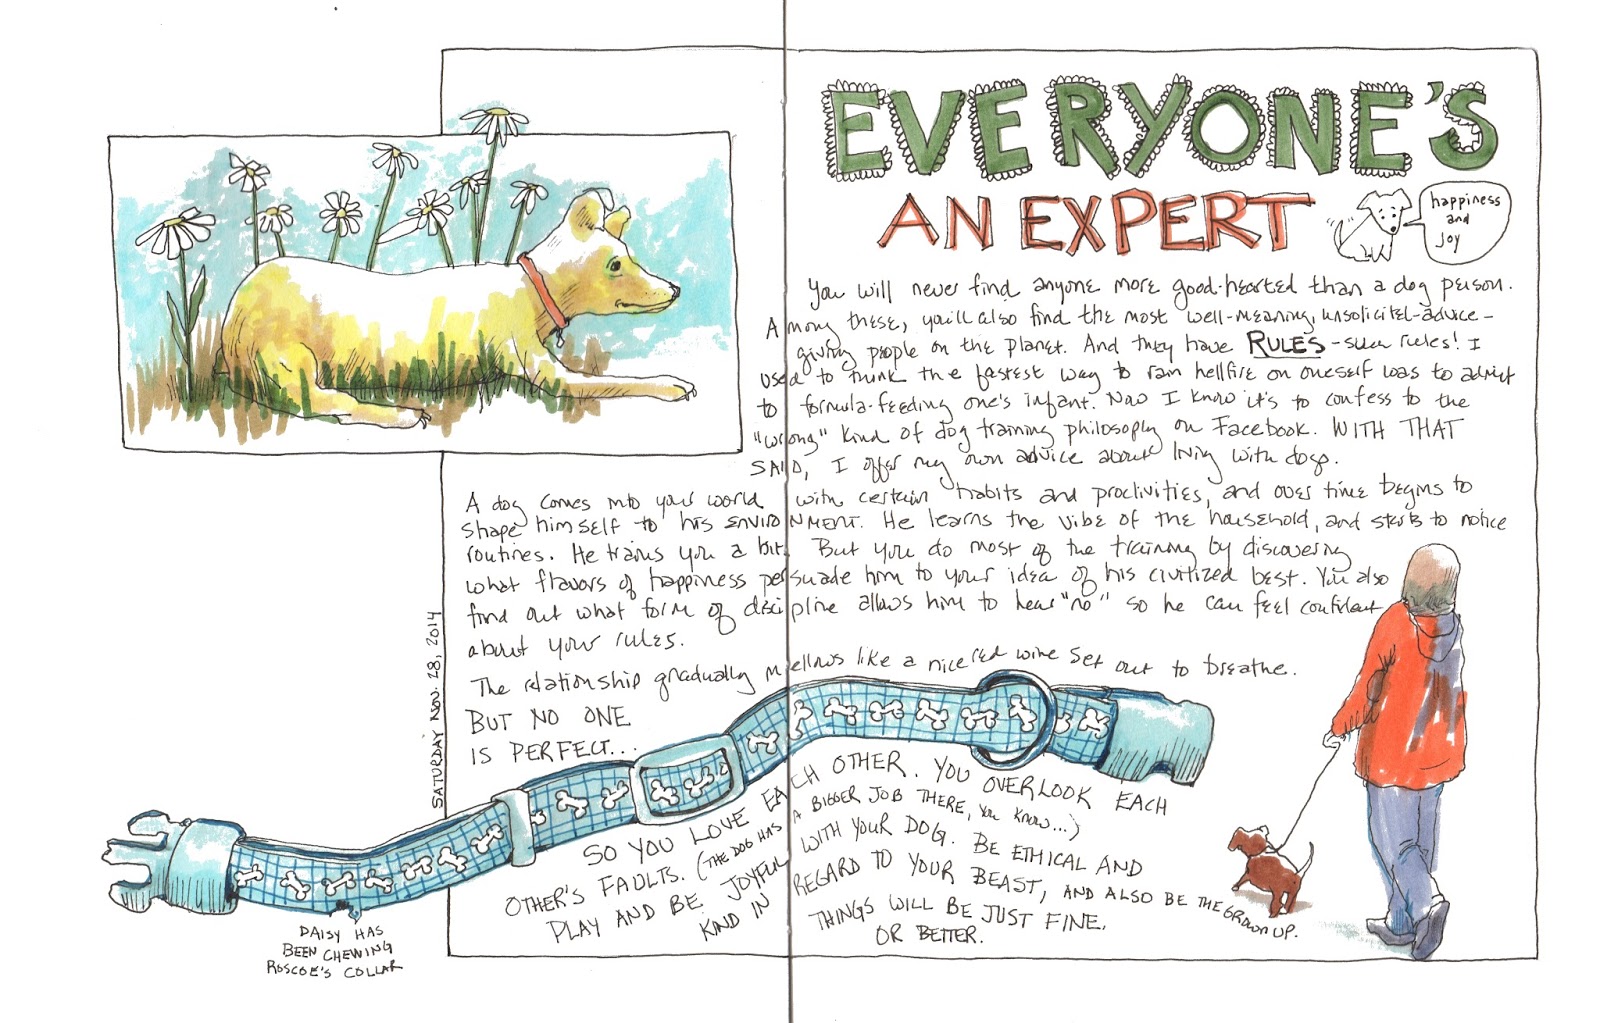 EVERYONE'S
AN EXPERT
happiness
and
joy
You will never find anyone more good-hearted than a dog person.
Among these, you'll also find the most well-meaning, unsolicited-advice-
giving people on the planet. And they have RULES - such rules! I
used to think the fastest way to rain hellfire on oneself was to admit
to formula-feeding one's infant. Now I know it's to confess to the
"wrong" kind of dog training philosophy on Facebook. WITH THAT
SAID, I offer my own advice about living with dogs.
A dog comes into your world with certain habits and proclivities, and over time begins to
shape himself to his ENVIRONMENT. He learns the vibe of the household, and starts to notice
routines. He trains you a bit. But you do most of the training by discovering
what flavors of happiness persuade him to your idea of his civilized best. You also
find out what form of discipline allows him to hear "no" so he can feel confident
about your rules.
The relationship gradually mellows like a nice red wine set out to breathe.
BUT NO ONE
IS PERFECT...
SO YOU LOVE EACH OTHER. YOU OVERLOOK EACH
OTHER'S FAULTS. (THE DOG HAS A BIGGER JOB THERE, YOU KNOW...)
PLAY AND BE JOYFUL WITH YOUR DOG. BE ETHICAL AND
KIND IN REGARD TO YOUR BEAST, AND ALSO BE THE GROWN UP.
THINGS WILL BE JUST FINE.
OR BETTER.
SATURDAY NOV. 28, 2014
DAISY HAS
BEEN CHEWING
ROSCOE'S COLLAR